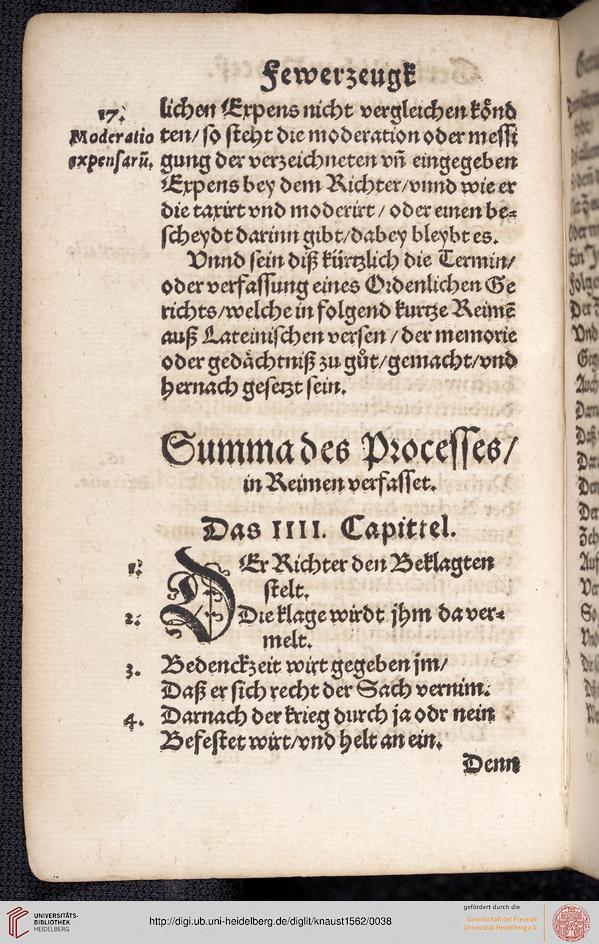 Fewerzeugk
17.
Moderatio
expensarū.
lichen Expens nicht vergleichen könd
ten/ so steht die moderation oder messi
gung der verzeichneten vñ eingegeben
Expens bey dem Richter/vnnd wie er
die taxirt vnd moderirt / oder einen be⸗
scheydt darinn gibt/dabey bleybt es.
Vnnd sein diß kürtzlich die Termin/
oder verfassung eines Ordenlichen Ge
richts/welche in folgend kurtze Reimē
auß Lateinischen versen / der memorie
oder gedächtniß zu gůt/gemacht/vnd
hernach gesetzt sein.
Summa des Processes/
in Reimen verfasset.
Das IIII. Capittel.
1. DEr Richter den Beklagten
stelt.
2. Die klage wirdt jhm da ver⸗
melt.
3. Bedenckzeit wirt gegeben jm/
Daß er sich recht der Sach vernim.
4. Darnach der krieg durch ja odr nein
Befestet wirt/vnd helt an ein.
Denn
UNIVERSITÄTS-
BIBLIOTHEK
HEIDELBERG
http://digi.ub.uni-heidelberg.de/diglit/knaust1562/0038
gefördert durch die
Gesellschaft der Freunde
Universität Heidelberg e.V.